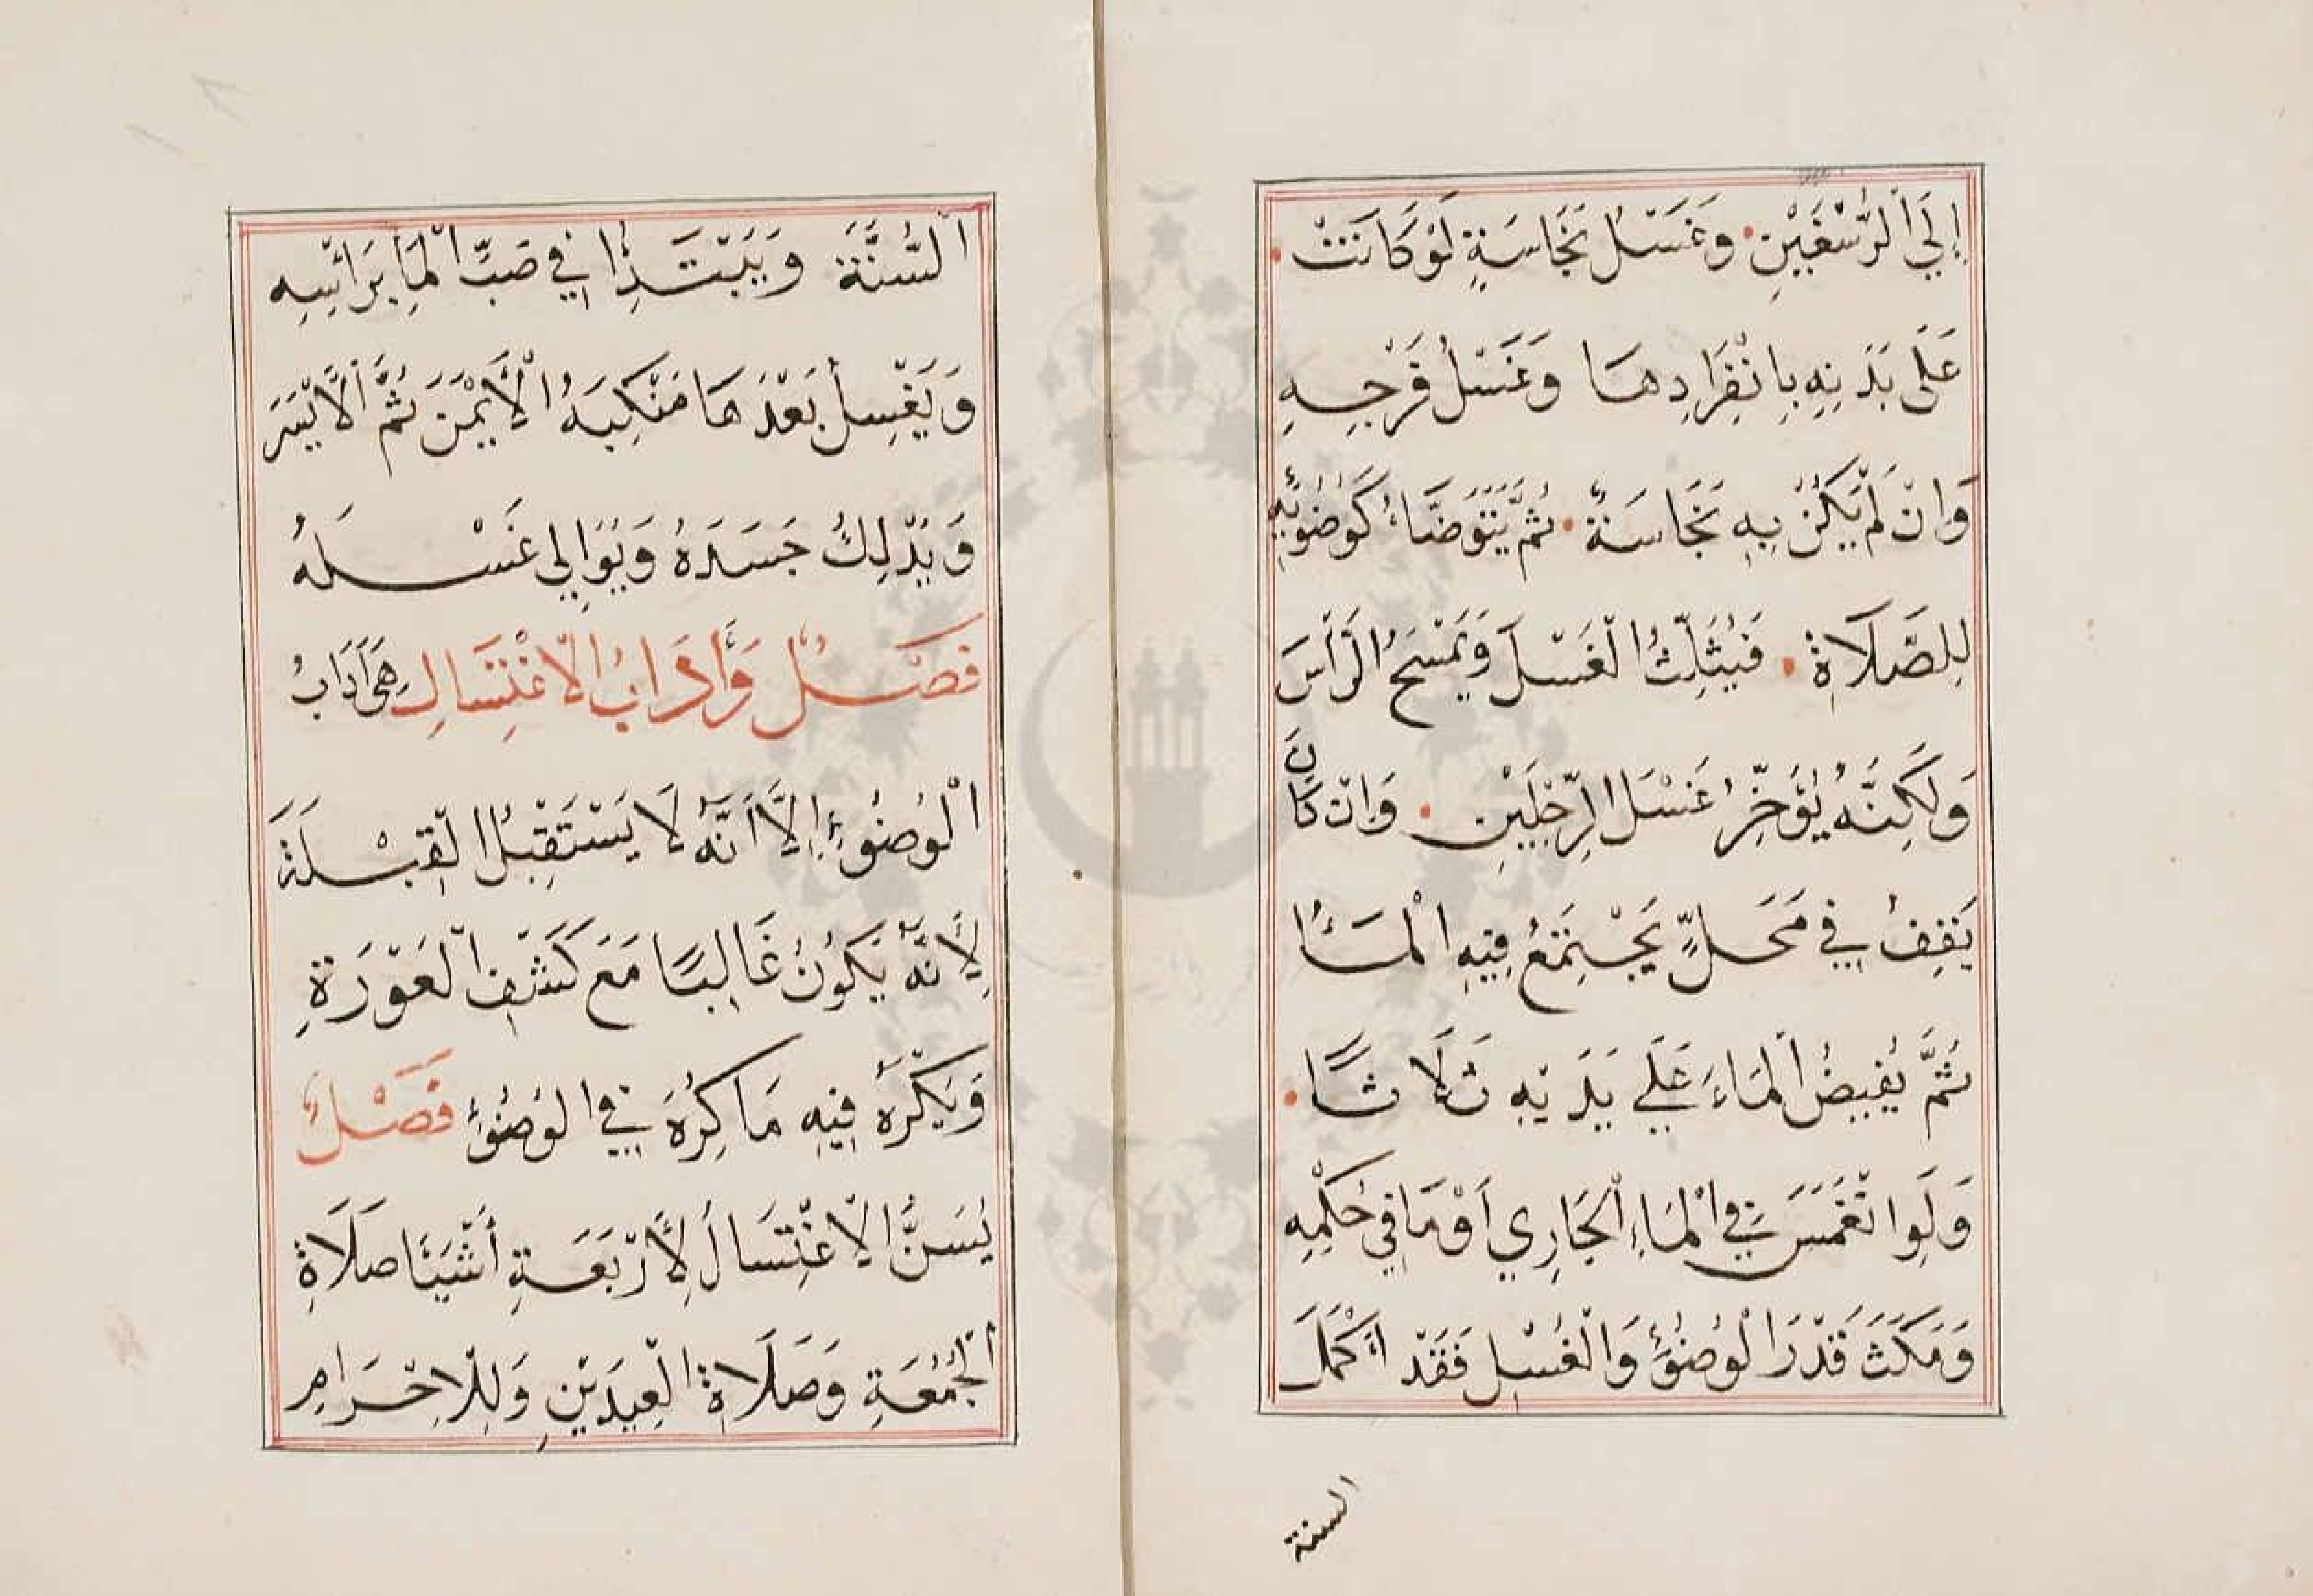 إِلَي الرُّسْغَيْنِ • وَغَسْلُ نَجَاسَةٍ لَوْ كَانَتْ •
عَلَى بَدَنِهِ بِانْفِرَادِهَا وَغَسْلُ فَرْجِهِ
وَاِنْ لَمْ يَكُنْ بِهِ نَجَاسَةٌ • ثُمَّ يَتَوَضَّاءُ كَوُضُوئِهِ
لِلصَّلَاةِ • فَيُثَلِّثُ الْغَسْلَ وَيَمْسَحُ الرَّأْسَ
وَلَكِنَّهُ يُؤَخِّرُ غَسْلَ الرِّجْلَيْنِ • وَاِنْ كَانَ
يَقِفُ فِي مَحَلٍّ يَجْتَمِعُ فِيهِ الْمَاءُ
ثُمَّ يُفِيضُ الْمَاءَ عَلَي بَدَنِهِ ثَلَاثًا •
وَلَوِ انْغَمَسَ فِي الْمَاءِ الْجَارِي اَوْ مَا فِي حُكْمِهِ
وَمَكَثَ قَدْرَ الْوُضُوْءِ وَالْغُسْلِ فَقَدْ اَكْمَلَ
السنة
السُّنَّةَ وَيَبْتَدِأُ فِي صَبِّ الْمَاءِ بِرَاْسِهِ
وَيَغْسِلُ بَعْدَهَا مَنْكِبَهُ الْأَيْمَنَ ثُمَّ الْاَيْسَرَ
وَيَدْلِكُ جَسَدَهُ وَيُوَالِي غَسْلَهُ
فَصْلٌ وَأَدَابُ الْاغْتِسَالِ هِيَ آدَابُ
الْوُضُوْءِ اِلَّا اَنَّهُ لَا يَسْتَقْبِلُ الْقِبْلَةَ
لِأَنَّهُ يَكُونُ غَالِبًا مَعَ كَشْفِ الْعَوْرَةِ
وَيَكْرَهُ فِيهِ مَا كُرِهَ فِي الْوُضُوْءِ فَصْلٌ
يُسَنُّ الْاغْتِسَالُ لِأَرْبَعَةِ أَشْيَئَا صَلَاةِ
الْجُمُعَةِ وَصَلَاةِ الْعِيدَيْنِ وَلِلْاِحْرَامِ